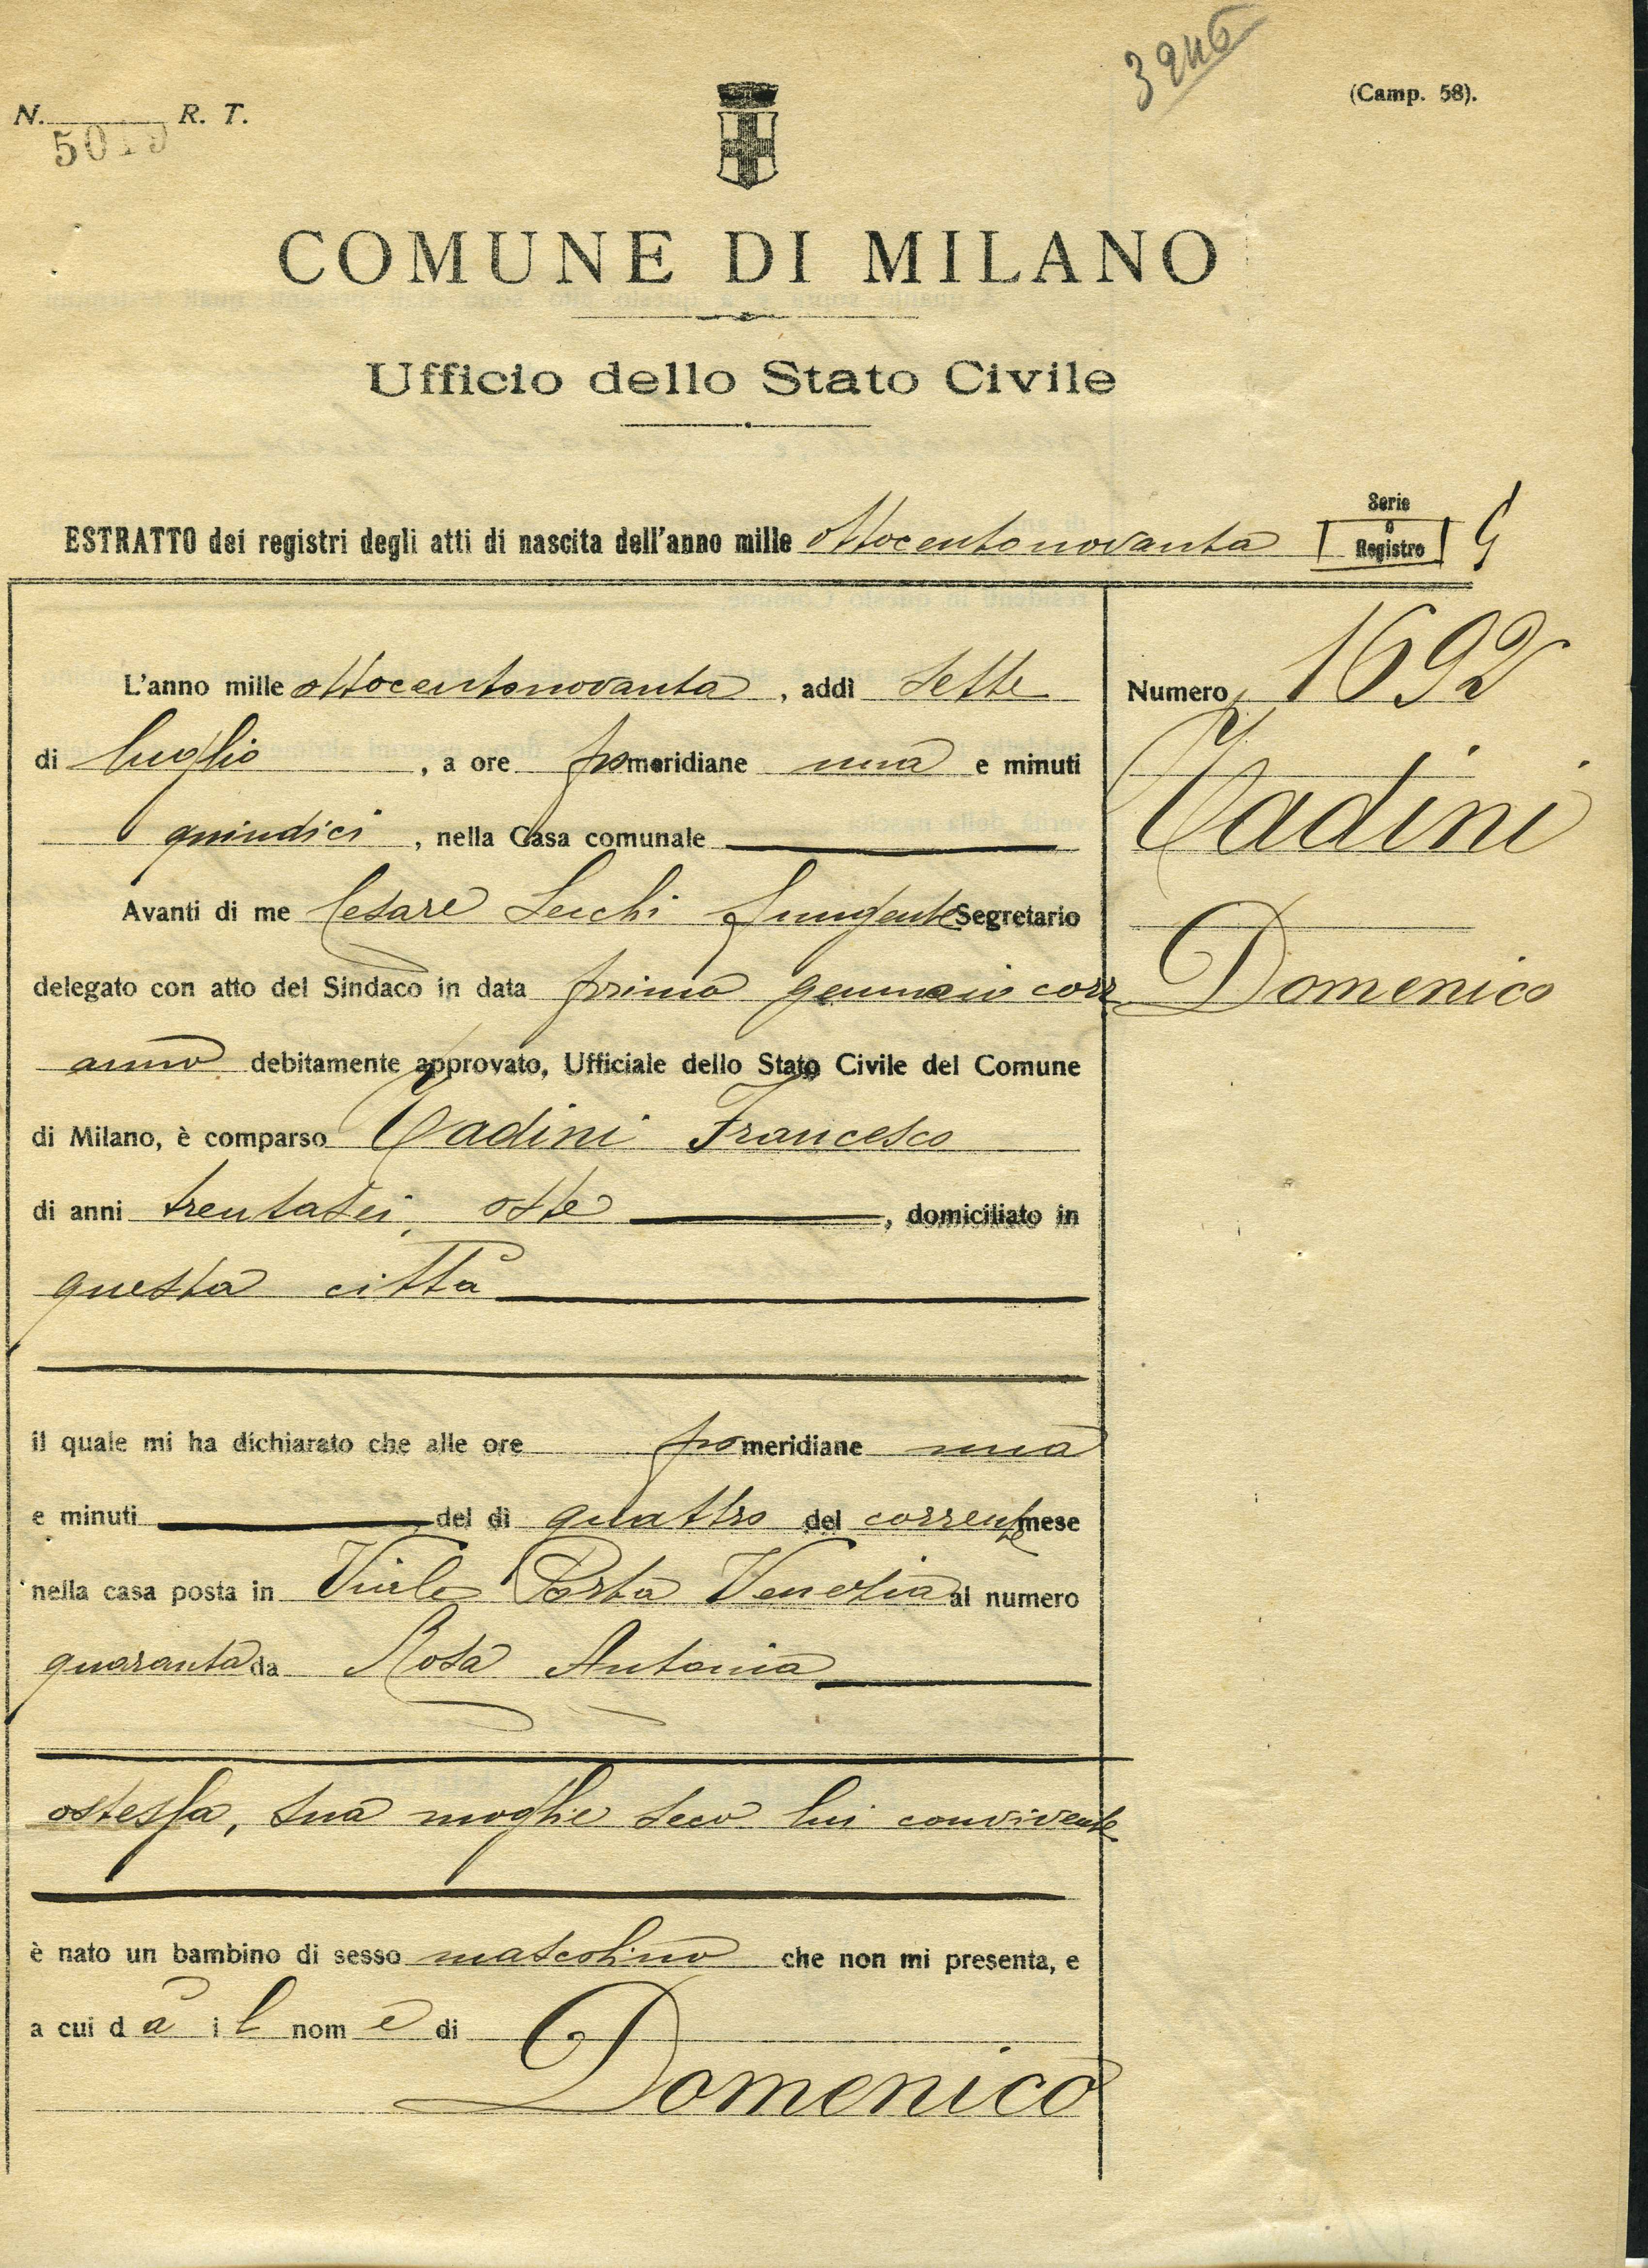 3246
(Camp. 58).
N. R. T.
COMUNE DI MILANO
Ufficio dello Stato Civile
ESTRATTO dei registri degli atti di nascita dell'anno mille ottocentonovanta
Serie
o
Registro
L'anno mille ottocentonovanta, addì sette
di luglio, a ore pomeridiane una e minuti
quindici, nella Casa comunale
Avanti di me Cesare Lecchi fungente Segretario
delegato con atto del Sindaco in data primo gennaio corr
anno debitamente approvato, Ufficiale dello Stato Civile del Comune
di Milano, è comparso Tadini Francesco
di anni trentasei, oste, domiciliato in
questa città
il quale mi ha dichiarato che alle ore pomeridiane una
e minuti del dì quattro del corrente mese
nella casa posta in Viale Porta Venezia al numero
quaranta da Rosa Antonia
ostessa, sua moglie seco lui convivente
è nato un bambino di sesso mascolino che non mi presenta, e
a cui dà il nome di
Domenico
Numero 1692
Tadini
Domenico